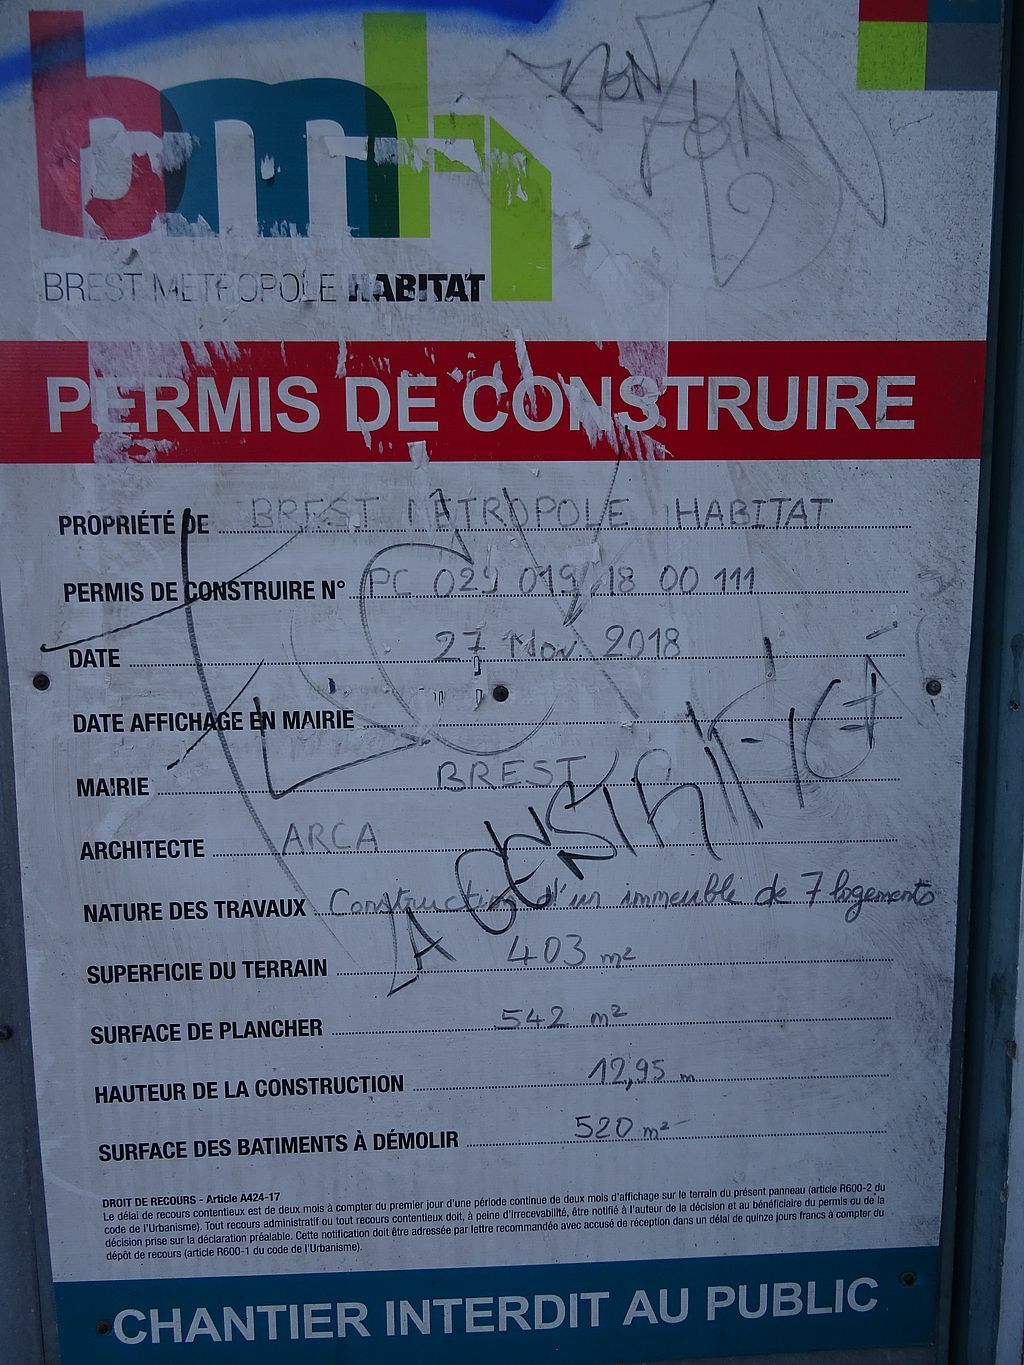 bmh
BREST METROPOLE HABITAT
PERMIS DE CONSTRUIRE
PROPRIÉTÉ DE BREST METROPOLE HABITAT
PERMIS DE CONSTRUIRE N° PC 029 019 18 00 111
DATE 27 Nov 2018
DATE AFFICHAGE EN MAIRIE
MAIRIE BREST
ARCHITECTE ARCA
NATURE DES TRAVAUX Construction d'un immeuble de 7 logements
SUPERFICIE DU TERRAIN 403 m²
SURFACE DE PLANCHER 542 m²
HAUTEUR DE LA CONSTRUCTION 12,95 m
SURFACE DES BATIMENTS À DÉMOLIR 520 m²
DROIT DE RECOURS - Article A424-17
Le délai de recours contentieux est de deux mois à compter du premier jour d'une période continue de deux mois d'affichage sur le terrain du présent panneau (article R600-2 du
code de l'Urbanisme). Tout recours administratif ou tout recours contentieux doit, à peine d'irrecevabilité, être notifié à l'auteur de la décision et au bénéficiaire du permis ou de la
décision prise sur la déclaration préalable. Cette notification doit être adressée par lettre recommandée avec accusé de réception dans un délai de quinze jours francs à compter du
dépôt de recours (article R600-1 du code de l'Urbanisme).
CHANTIER INTERDIT AU PUBLIC